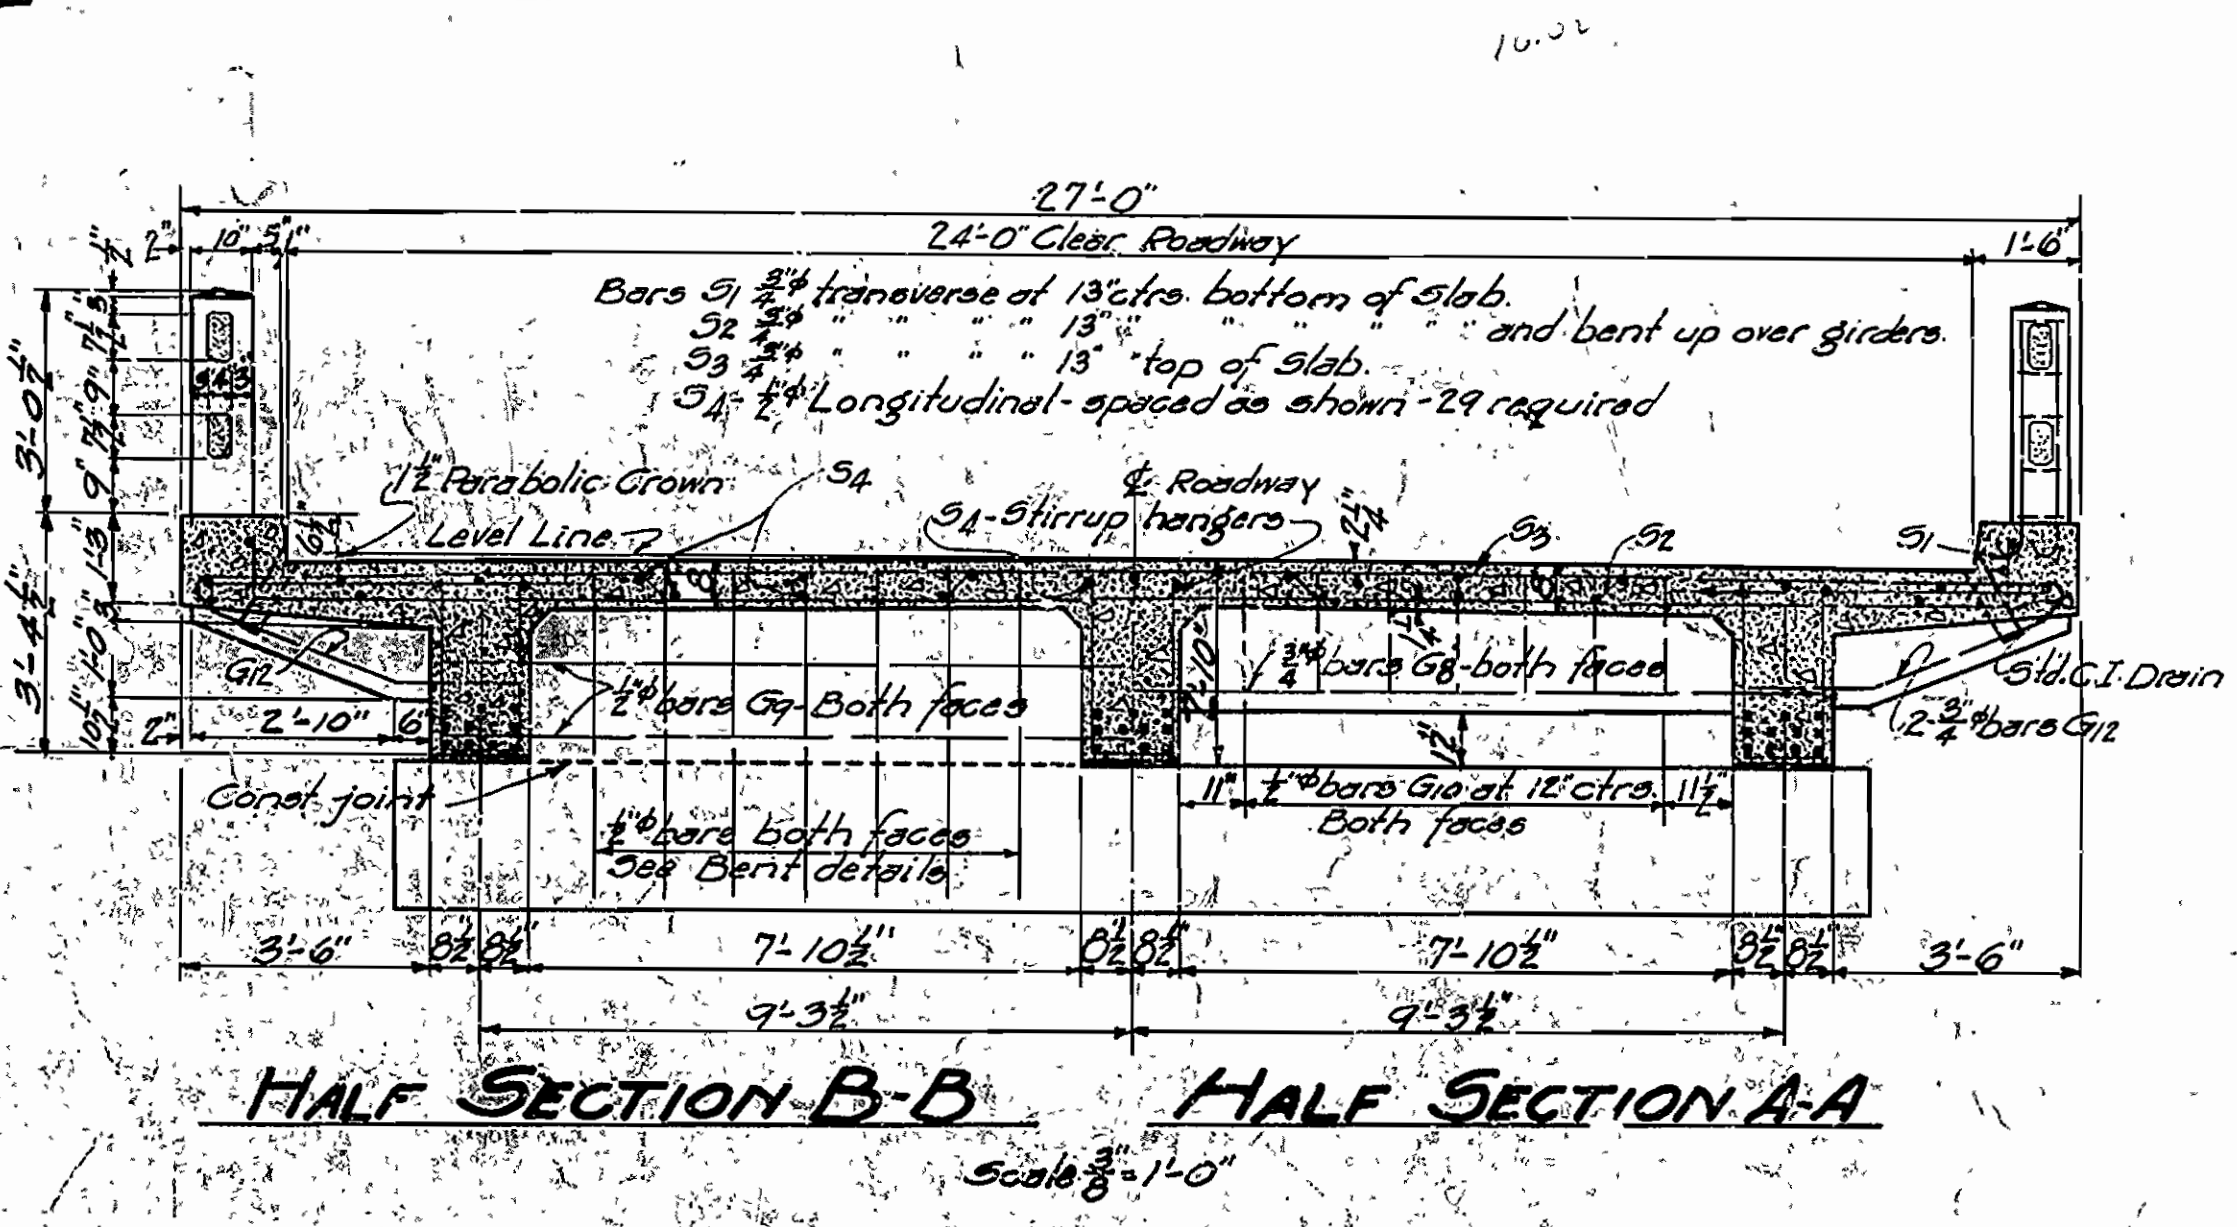 10.02
27'-0"
24'-0" Clear Roadway
2" 10" 5" 1"
1'-6"
Bars S1 3/4"ϕ transverse at 13" ctrs. bottom of slab.
S2 3/4"ϕ " " " " 13" " " " " " " and bent up over girders.
S3 3/4"ϕ " " " " 13" " top of slab.
S4 - 1/2"ϕ Longitudinal - spaced as shown - 29 required
3'-0 1/2"
1 1/2"
3"
7 1/2"
9"
7 1/2"
9"
3 4 3
1 1/2" Parabolic Crown
S4
℄ Roadway
Level Line
S4 - Stirrup hangers
2 1/4"
S3
S2
S1
6 1/2"
3'-4 1/2"
1'-3"
3"
1'-0"
10 1/2"
8"
8"
1 1/4"
2'-10"
G12
1/2"ϕ bars G9 - Both faces
3/4"ϕ bars G8 - both faces
Std. C.I. Drain
2 - 3/4"ϕ bars G12
2" 2'-10" 6"
12"
Const. joint
11" 1/2"ϕ bars G10 at 12" ctrs. 11 1/2"
Both faces
1/2"ϕ bars both faces
See Bent details
3'-6" 8 1/2" 8 1/2" 7'-10 1/2" 8 1/2" 8 1/2" 7'-10 1/2" 8 1/2" 8 1/2" 3'-6"
9'-3 1/2" 9'-3 1/2"
HALF SECTION B-B
HALF SECTION A-A
Scale 3/8" = 1'-0"